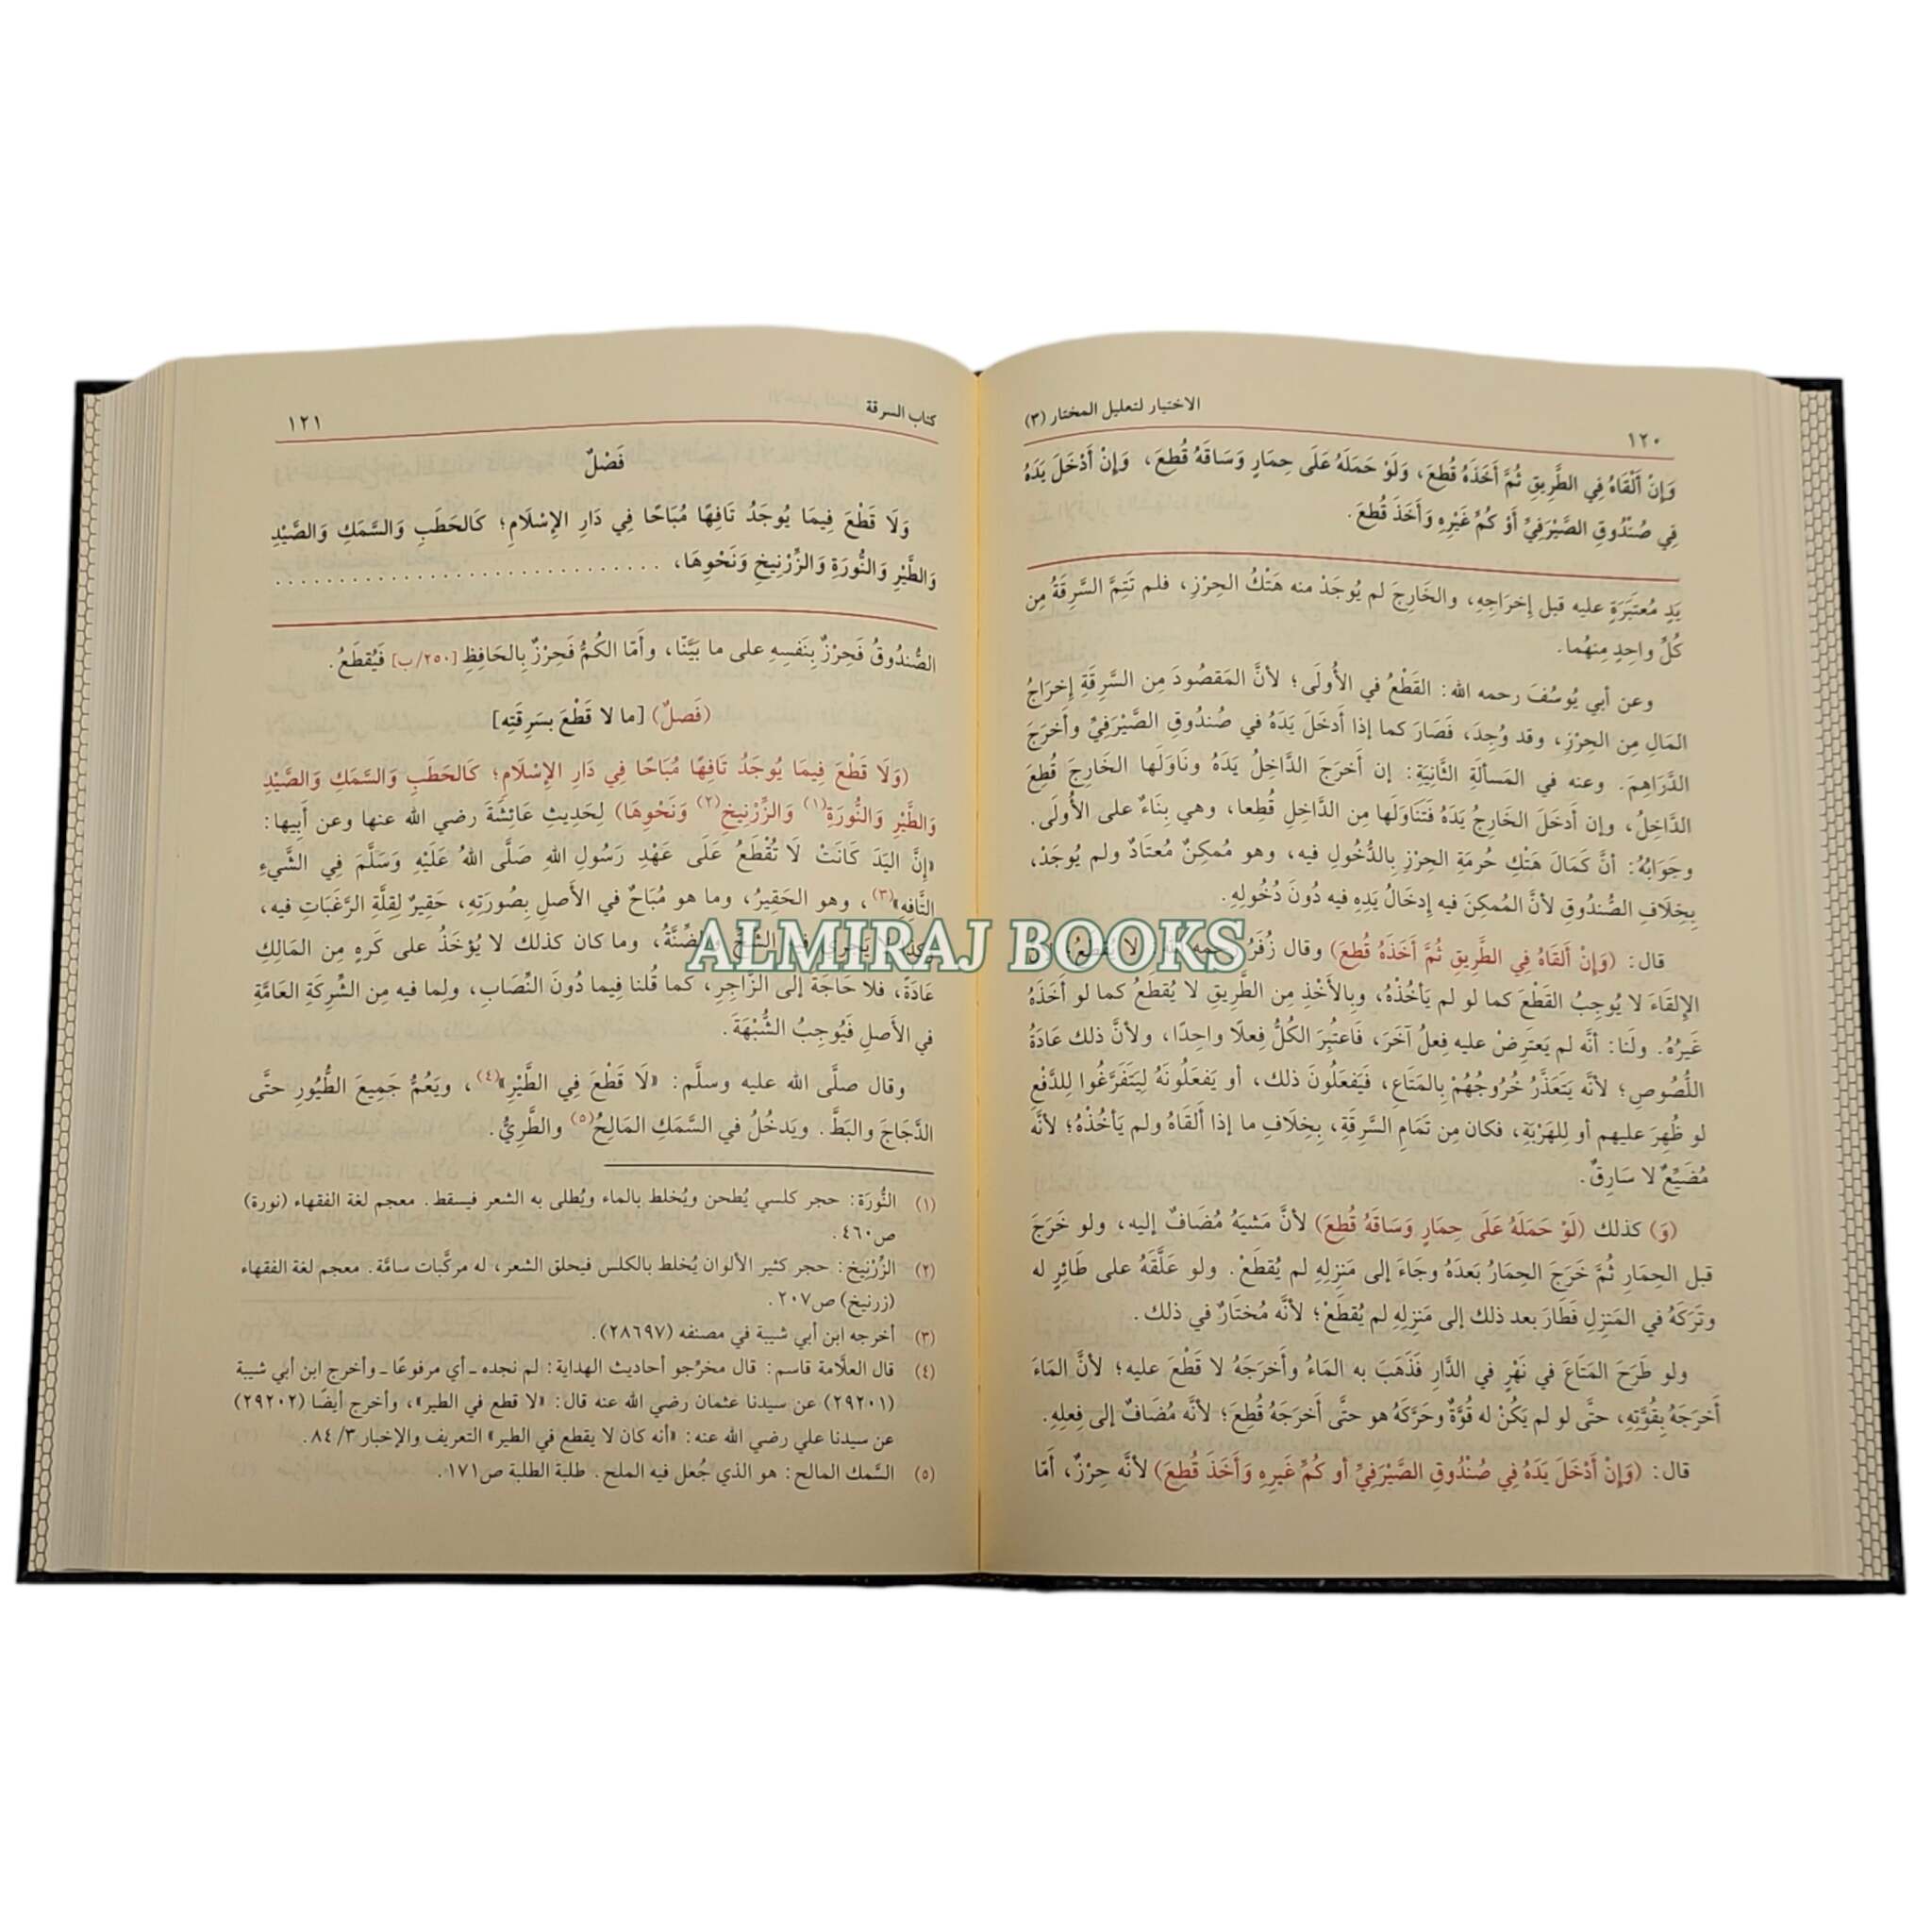 ١٢٠
الاختيار لتعليل المختار (٣)
وَإِنْ أَلْقَاهُ فِي الطَّرِيقِ ثُمَّ أَخَذَهُ قُطِعَ، وَلَوْ حَمَلَهُ عَلَى حِمَارٍ وَسَاقَهُ قُطِعَ، وَإِنْ أَدْخَلَ يَدَهُ
فِي صُنْدُوقِ الصَّيْرَفِيِّ أَوْ كُمِّ غَيْرِهِ وَأَخَذَ قُطِعَ.
يَدٍ مُعتَبَرَةٍ عليه قبل إِخرَاجِهِ، والخَارِجَ لم يُوجَدْ منه هَتْكُ الحِرْزِ، فلم تَتِمَّ السَّرِقَةُ مِن
كُلِّ واحِدٍ مِنهُما.
وعن أبي يُوسُفَ رحمه الله: القَطْعُ في الأُولَى؛ لأنَّ المَقصُودَ مِن السَّرِقَةِ إِخرَاجُ
المَالِ مِن الحِرْزِ، وقد وُجِدَ، فَصَارَ كما إذا أَدخَلَ يَدَهُ في صُندُوقِ الصَّيْرَفِيِّ وأَخرَجَ
الدَّرَاهِمَ. وعنه في المَسأَلَةِ الثَّانِيَةِ: إن أَخرَجَ الدَّاخِلُ يَدَهُ ونَاوَلَها الخَارِجَ قُطِعَ
الدَّاخِلُ، وإن أَدخَلَ الخَارِجُ يَدَهُ فَتَنَاوَلَها مِن الدَّاخِلِ قُطِعا، وهي بِنَاءٌ على الأُولَى.
وجَوَابُهُ: أنَّ كَمَالَ هَتْكِ حُرمَةِ الحِرْزِ بِالدُّخُولِ فيه، وهو مُمكِنٌ مُعتَادٌ ولم يُوجَدْ،
بِخِلَافِ الصُّندُوقِ لأنَّ المُمكِنَ فيه إِدخَالُ يَدِهِ فيه دُونَ دُخُولِهِ.
قال: (وَإِنْ أَلْقَاهُ فِي الطَّرِيقِ ثُمَّ أَخَذَهُ قُطِعَ) وقال زُفَرُ لا يُقطَعُ؛
الإِلقَاءَ لا يُوجِبُ القَطْعَ كما لو لم يَأخُذْهُ، وبِالأَخْذِ مِن الطَّرِيقِ لا يُقطَعُ كما لو أَخَذَهُ
غَيرُهُ. ولَنَا: أنَّه لم يَعتَرِضْ عليه فِعلٌ آخَرَ، فَاعتُبِرَ الكُلُّ فِعلًا واحِدًا، ولأنَّ ذلك عَادَةُ
اللُّصُوصِ؛ لأنَّه يَتَعَذَّرُ خُرُوجُهُمْ بِالمَتَاعِ، فَيَفعَلُونَ ذلك، أو يَفعَلُونَهُ لِيَتَفَرَّغُوا لِلدَّفْعِ
لو ظُهِرَ عليهم أو لِلهَرْبَةِ، فكان مِن تَمَامِ السَّرِقَةِ، بِخِلَافِ ما إذا أَلقَاهُ ولم يَأخُذْهُ؛ لأنَّه
مُضَيِّعٌ لا سَارِقٌ.
(وَ) كذلك (لَوْ حَمَلَهُ عَلَى حِمَارٍ وَسَاقَهُ قُطِعَ) لأنَّ مَشيَهُ مُضَافٌ إليه، ولو خَرَجَ
قبل الحِمَارِ ثُمَّ خَرَجَ الحِمَارُ بَعدَهُ وجَاءَ إلى مَنزِلِهِ لم يُقطَعْ. ولو عَلَّقَهُ على طَائِرٍ له
وتَرَكَهُ في المَنزِلِ فَطَارَ بعد ذلك إلى مَنزِلِهِ لم يُقطَعْ؛ لأنَّه مُختَارٌ في ذلك.
ولو طَرَحَ المَتَاعَ في نَهْرٍ في الدَّارِ فَذَهَبَ به المَاءُ وأَخرَجَهُ لا قَطْعَ عليه؛ لأنَّ المَاءَ
أَخرَجَهُ بِقُوَّتِهِ، حتَّى لو لم يَكُنْ له قُوَّةٌ وحَرَّكَهُ هو حتَّى أَخرَجَهُ قُطِعَ؛ لأنَّه مُضَافٌ إلى فِعلِهِ.
قال: (وَإِنْ أَدْخَلَ يَدَهُ فِي صُنْدُوقِ الصَّيْرَفِيِّ أو كُمِّ غَيرِهِ وَأَخَذَ قُطِعَ) لأنَّه حِرْزٌ، أمَّا
كتاب السرقة
١٢١
فَصْلٌ
وَلَا قَطْعَ فِيمَا يُوجَدُ تَافِهًا مُبَاحًا فِي دَارِ الإِسْلَامِ؛ كَالحَطَبِ وَالسَّمَكِ وَالصَّيْدِ
وَالطَّيْرِ وَالنُّورَةِ وَالزِّرْنِيخِ وَنَحْوِهَا، . . . . . . . . . . . . . . . . . . . . . . . . . . . . . .
الصُّندُوقُ فَحِرْزٌ بِنَفسِهِ على ما بَيَّنَّا، وأَمَّا الكُمُّ فَحِرْزٌ بِالحَافِظِ [٢٥٠/ب] فَيُقطَعُ.
(فَصلٌ) [ما لا قَطْعَ بسَرِقَتِه]
(وَلَا قَطْعَ فِيمَا يُوجَدُ تَافِهًا مُبَاحًا فِي دَارِ الإِسْلَامِ؛ كَالحَطَبِ وَالسَّمَكِ وَالصَّيْدِ
وَالطَّيْرِ وَالنُّورَةِ(١) وَالزِّرْنِيخِ(٢) وَنَحْوِهَا) لِحَدِيثِ عَائِشَةَ رضي الله عنها وعن أَبِيها:
«إِنَّ اليَدَ كَانَتْ لَا تُقْطَعُ عَلَى عَهْدِ رَسُولِ اللهِ صَلَّى اللهُ عَلَيْهِ وَسَلَّمَ فِي الشَّيْءِ
التَّافِهِ»(٣)، وهو الحَقِيرُ، وما هو مُبَاحٌ في الأَصلِ بِصُورَتِهِ، حَقِيرٌ لِقِلَّةِ الرَّغَبَاتِ فيه،
لا يَجرِي الشُّحُّ والضِّنَّةُ، وما كان كذلك لا يُؤخَذُ على كَرهٍ مِن المَالِكِ
عَادَةً، فلا حَاجَةَ إلى الزَّاجِرِ، كما قُلنا فِيما دُونَ النِّصَابِ، ولِما فيه مِن الشِّرِكَةِ العَامَّةِ
في الأَصلِ فَيُوجِبُ الشُّبْهَةَ.
وقال صلَّى الله عليه وسلَّم: «لَا قَطْعَ فِي الطَّيْرِ»(٤)، ويَعُمُّ جَمِيعَ الطُّيُورِ حتَّى
الدَّجَاجَ والبَطَّ. ويَدخُلُ في السَّمَكِ المَالِحُ(٥) والطَّرِيُّ.
(١) النُّورَة: حجر كلسي يُطحن ويُخلط بالماء ويُطلى به الشعر فيسقط. معجم لغة الفقهاء (نورة)
ص٤٦٠.
(٢) الزِّرْنِيخ: حجر كثير الألوان يُخلط بالكلس فيحلق الشعر، له مركَّبات سامَّة. معجم لغة الفقهاء
(زرنيخ) ص٢٠٧.
(٣) أخرجه ابن أبي شيبة في مصنفه (٢٨٦٩٧).
(٤) قال العلَّامة قاسم: قال مخرِّجو أحاديث الهداية: لم نجده ـ أي مرفوعًا ـ وأخرج ابن أبي شيبة
(٢٩٢٠١) عن سيدنا عثمان رضي الله عنه قال: «لا قطع في الطير»، وأخرج أيضًا (٢٩٢٠٢)
عن سيدنا علي رضي الله عنه: «أنه كان لا يقطع في الطير» التعريف والإخبار ٣/ ٨٤.
(٥) السَّمك المالح: هو الذي جُعل فيه الملح. طلبة الطلبة ص١٧١.
ALMIRAJ BOOKS